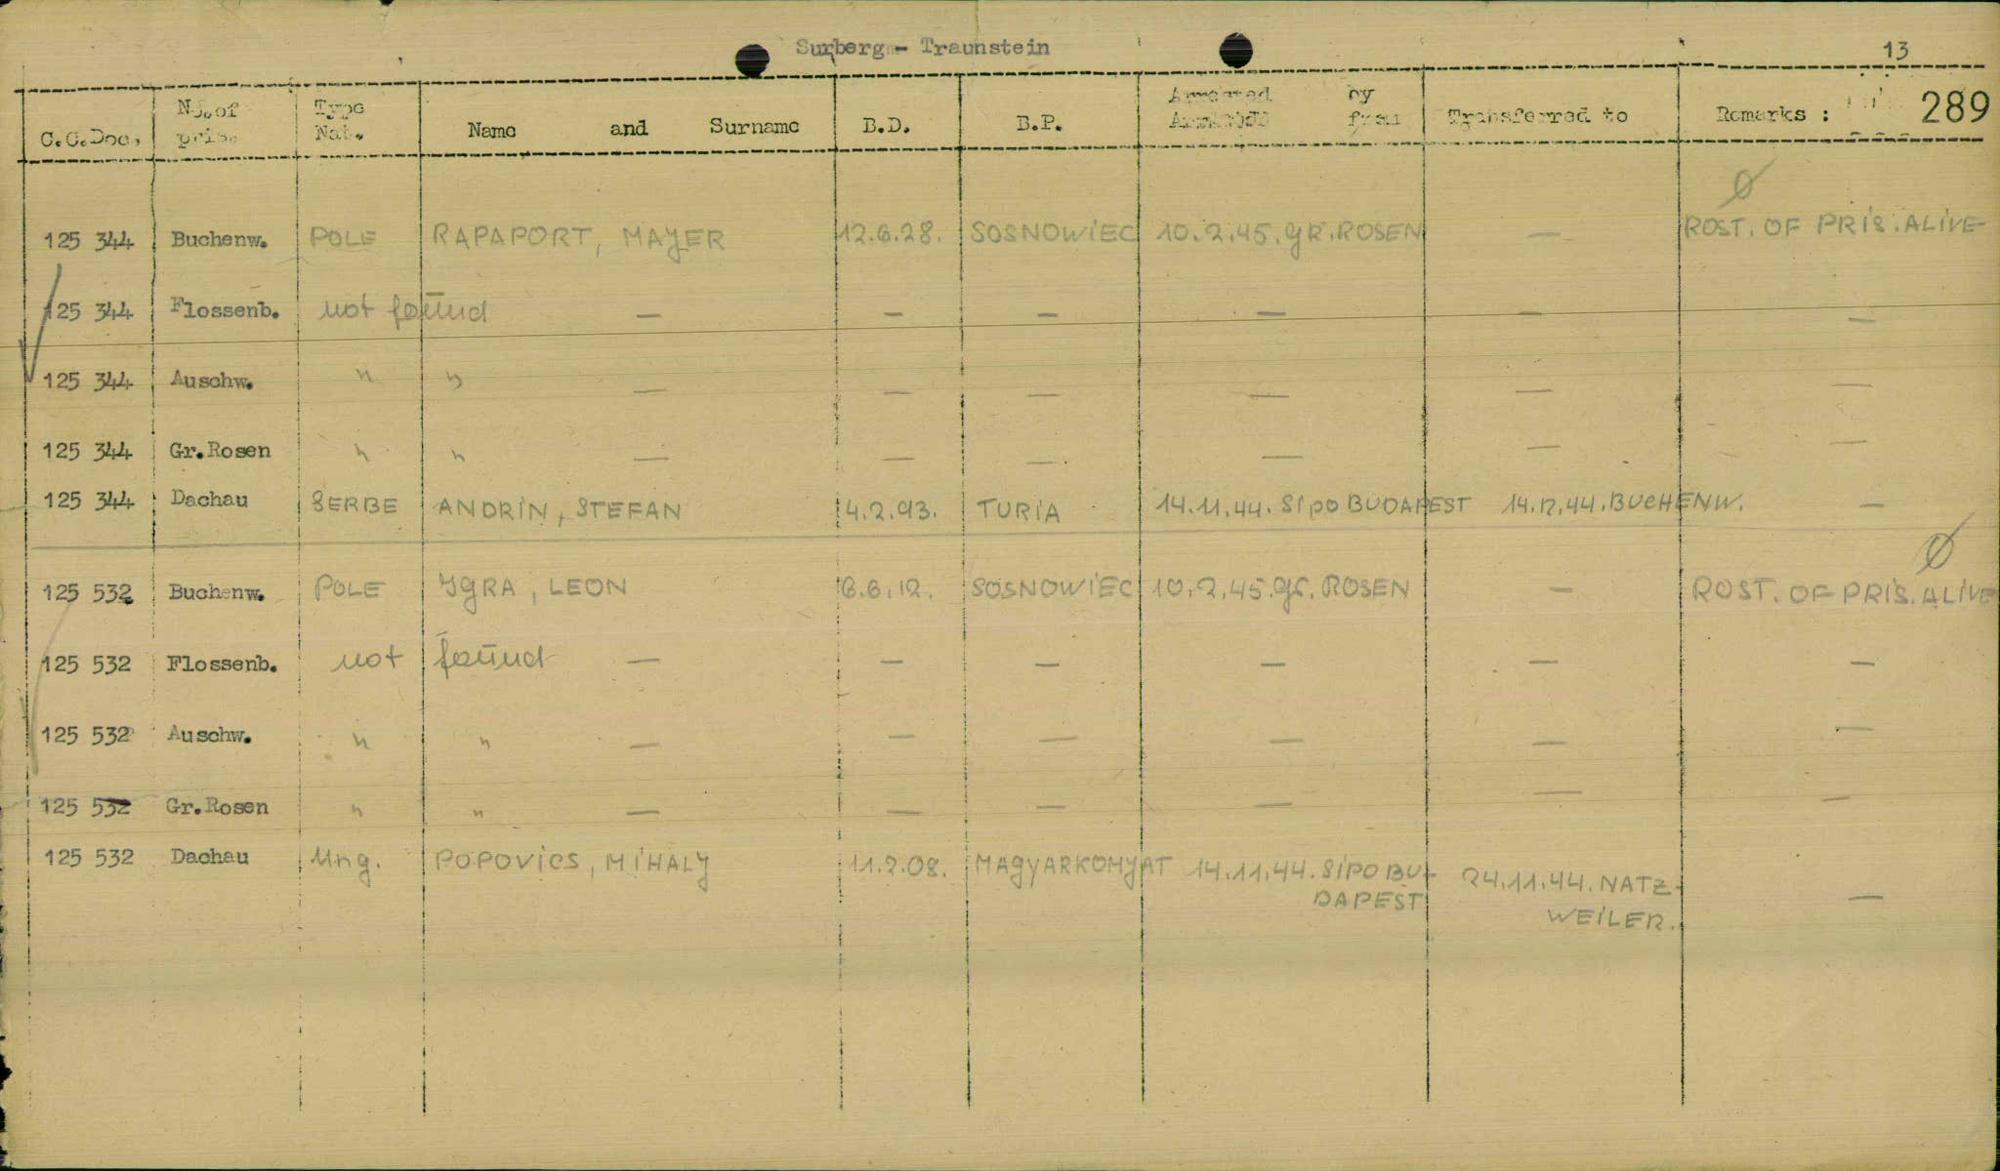 Surberg - Traunstein
13
289
C.C.Doc. No.of pris. Type Nat. Name and Surname B.D. B.P. Arrested by from Transferred to Remarks :
Ø
125 344 Buchenw. POLE RAPAPORT, MAYER 12.6.28. SOSNOWIEC 10.2.45. GR. ROSEN — ROST. OF PRIS. ALIVE
125 344 Flossenb. not found — — — — — —
125 344 Auschw. " " — — — — — —
125 344 Gr.Rosen " " — — — — — —
125 344 Dachau SERBE ANDRIN, STEFAN 4.2.93. TURIA 14.11.44. SIPO BUDAPEST 14.12.44. BUCHENW. —
Ø
125 532 Buchenw. POLE IGRA, LEON 6.6.12. SOSNOWIEC 10.2.45. GR. ROSEN — ROST. OF PRIS. ALIVE
125 532 Flossenb. not found — — — — — —
125 532 Auschw. " " — — — — — —
125 532 Gr.Rosen " " — — — — — —
125 532 Dachau Ung. POPOVICS, MIHALY 11.2.08. MAGYARKOMYAT 14.11.44. SIPO BU- 24.11.44. NATZ- —
DAPEST WEILER.